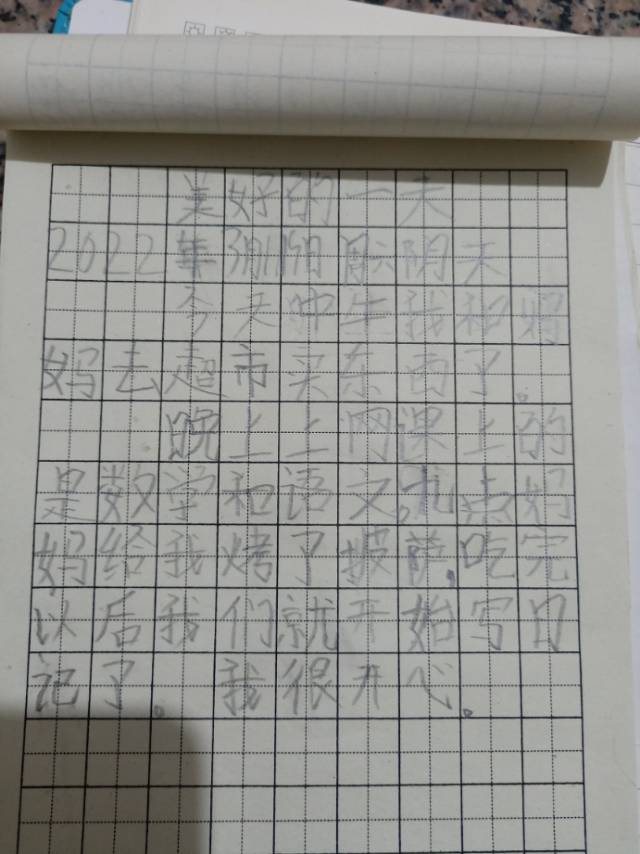 美好的一天
2022年3月19日 周六 阴天
今天中午我和妈
妈去超市买东西了。
晚上上网课上的
是数学和语文。九点妈
妈给我烤了披萨,吃完
以后我们就开始写日
记了。我很开心。